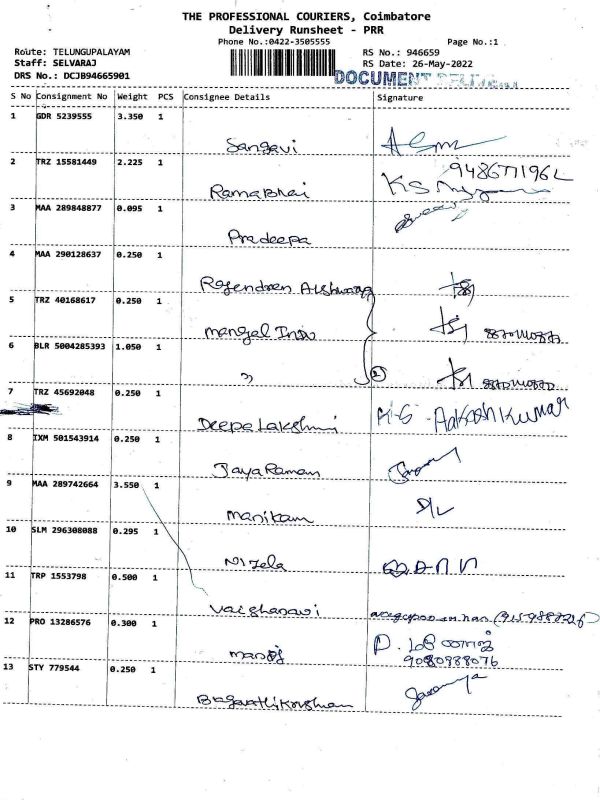 THE PROFESSIONAL COURIERS, Coimbatore
Delivery Runsheet - PRR
Phone No.:0422-3505555
Page No.:1
Route: TELUNGUPALAYAM
RS No.: 946659
Staff: SELVARAJ
RS Date: 26-May-2022
DRS No.: DCJB94665901
DOCUMENT
S No Consignment No Weight PCS Consignee Details Signature
1 GDR 5239555 3.350 1
Sangavi
2 TRZ 15581449 2.225 1
RamaBhai
3 MAA 289848877 0.095 1
Pradeepa
4 MAA 290128637 0.250 1
Rajendren
5 TRZ 40168617 0.250 1
6 BLR 5004285393 1.050 1
"
2
7 TRZ 45692048 0.250 1
Deepa Lakshmi K.G. Aakash Kumar
8 IXM 501543914 0.250 1
JayaRaman
9 MAA 289742664 3.550 1
Manikam
10 SLM 296308088 0.295 1
11 TRP 1553798 0.500 1
Vaishanavi
12 PRO 13286576 0.300 1
Manoj
9080988076
13 STY 779544 0.250 1